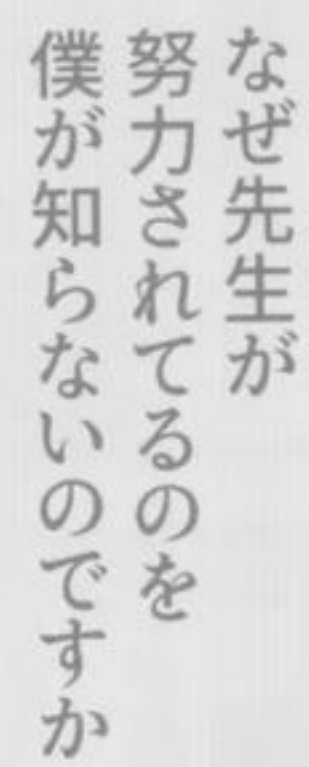 なぜ先生が
努力されてるのを
僕が知らないのですか